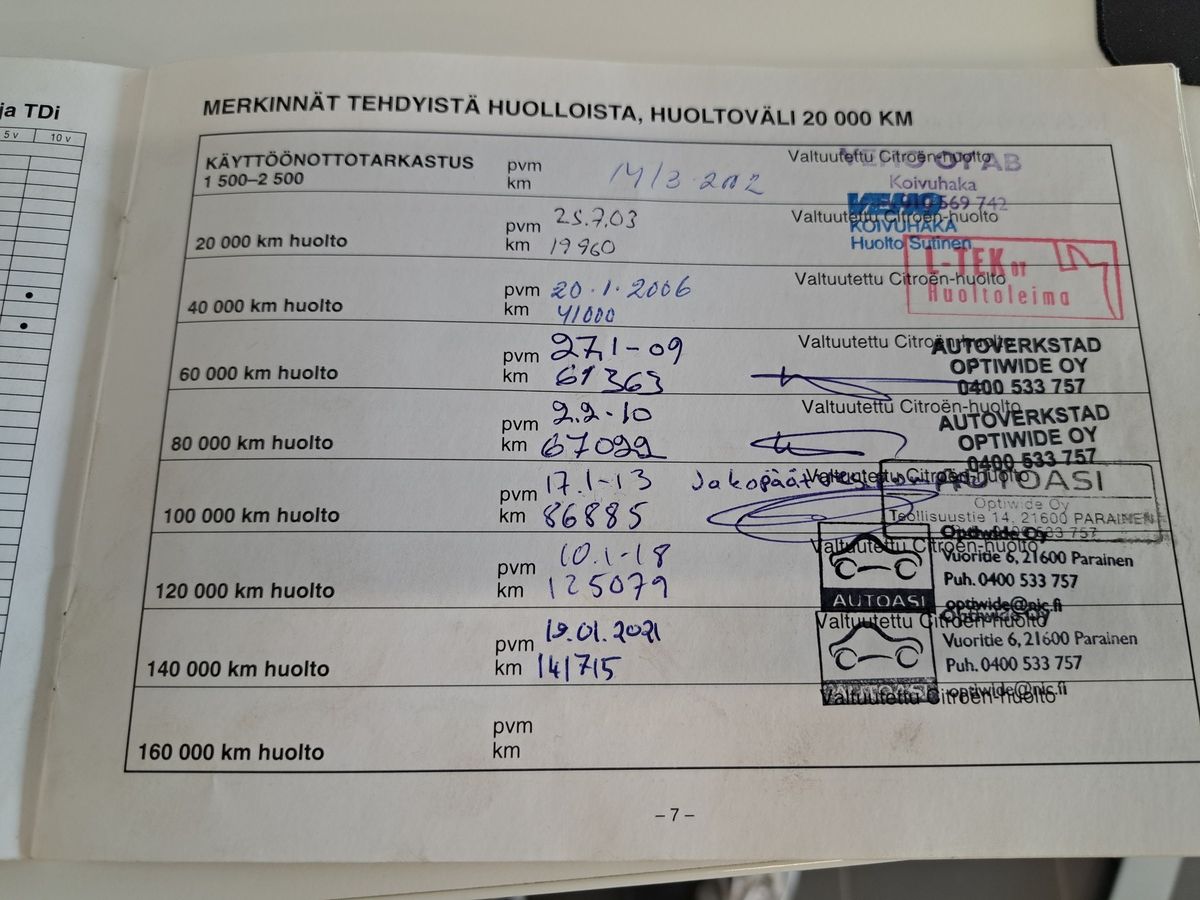 ja TDi
5 v 10 v
MERKINNÄT TEHDYISTÄ HUOLLOISTA, HUOLTOVÄLI 20 000 KM
KÄYTTÖÖNOTTOTARKASTUS pvm 14/3-2002 Valtuutettu Citroën-huolto
1 500–2 500 km
VEHO OY AB
Koivuhaka
569 742
pvm 25.7.03 Valtuutettu Citroën-huolto
20 000 km huolto km 19960
VEHO
KOIVUHAKA
Huolto Sutinen
pvm 20.1.2006 Valtuutettu Citroën-huolto
40 000 km huolto km 41000
L-TEK OY
Huoltoleima
pvm 27.1-09 Valtuutettu Citroën-huolto
60 000 km huolto km 61363
AUTOVERKSTAD
OPTIWIDE OY
0400 533 757
pvm 2.2-10 Valtuutettu Citroën-huolto
80 000 km huolto km 67022
AUTOVERKSTAD
OPTIWIDE OY
0400 533 757
pvm 17.1-13 Valtuutettu Citroën-huolto
100 000 km huolto km 86885
AUTOASI
Optiwide Oy
Teollisuustie 14, 21600 PARAINEN
533 757
pvm 10.1-18 Valtuutettu Citroën-huolto
120 000 km huolto km 125079
Optiwide Oy
Vuoritie 6, 21600 Parainen
Puh. 0400 533 757
AUTOASI optiwide@nic.fi
pvm 19.01.2021 Valtuutettu Citroën-huolto
140 000 km huolto km 141715
Optiwide Oy
Vuoritie 6, 21600 Parainen
Puh. 0400 533 757
AUTOASI optiwide@nic.fi
pvm Valtuutettu Citroën-huolto
160 000 km huolto km
– 7 –